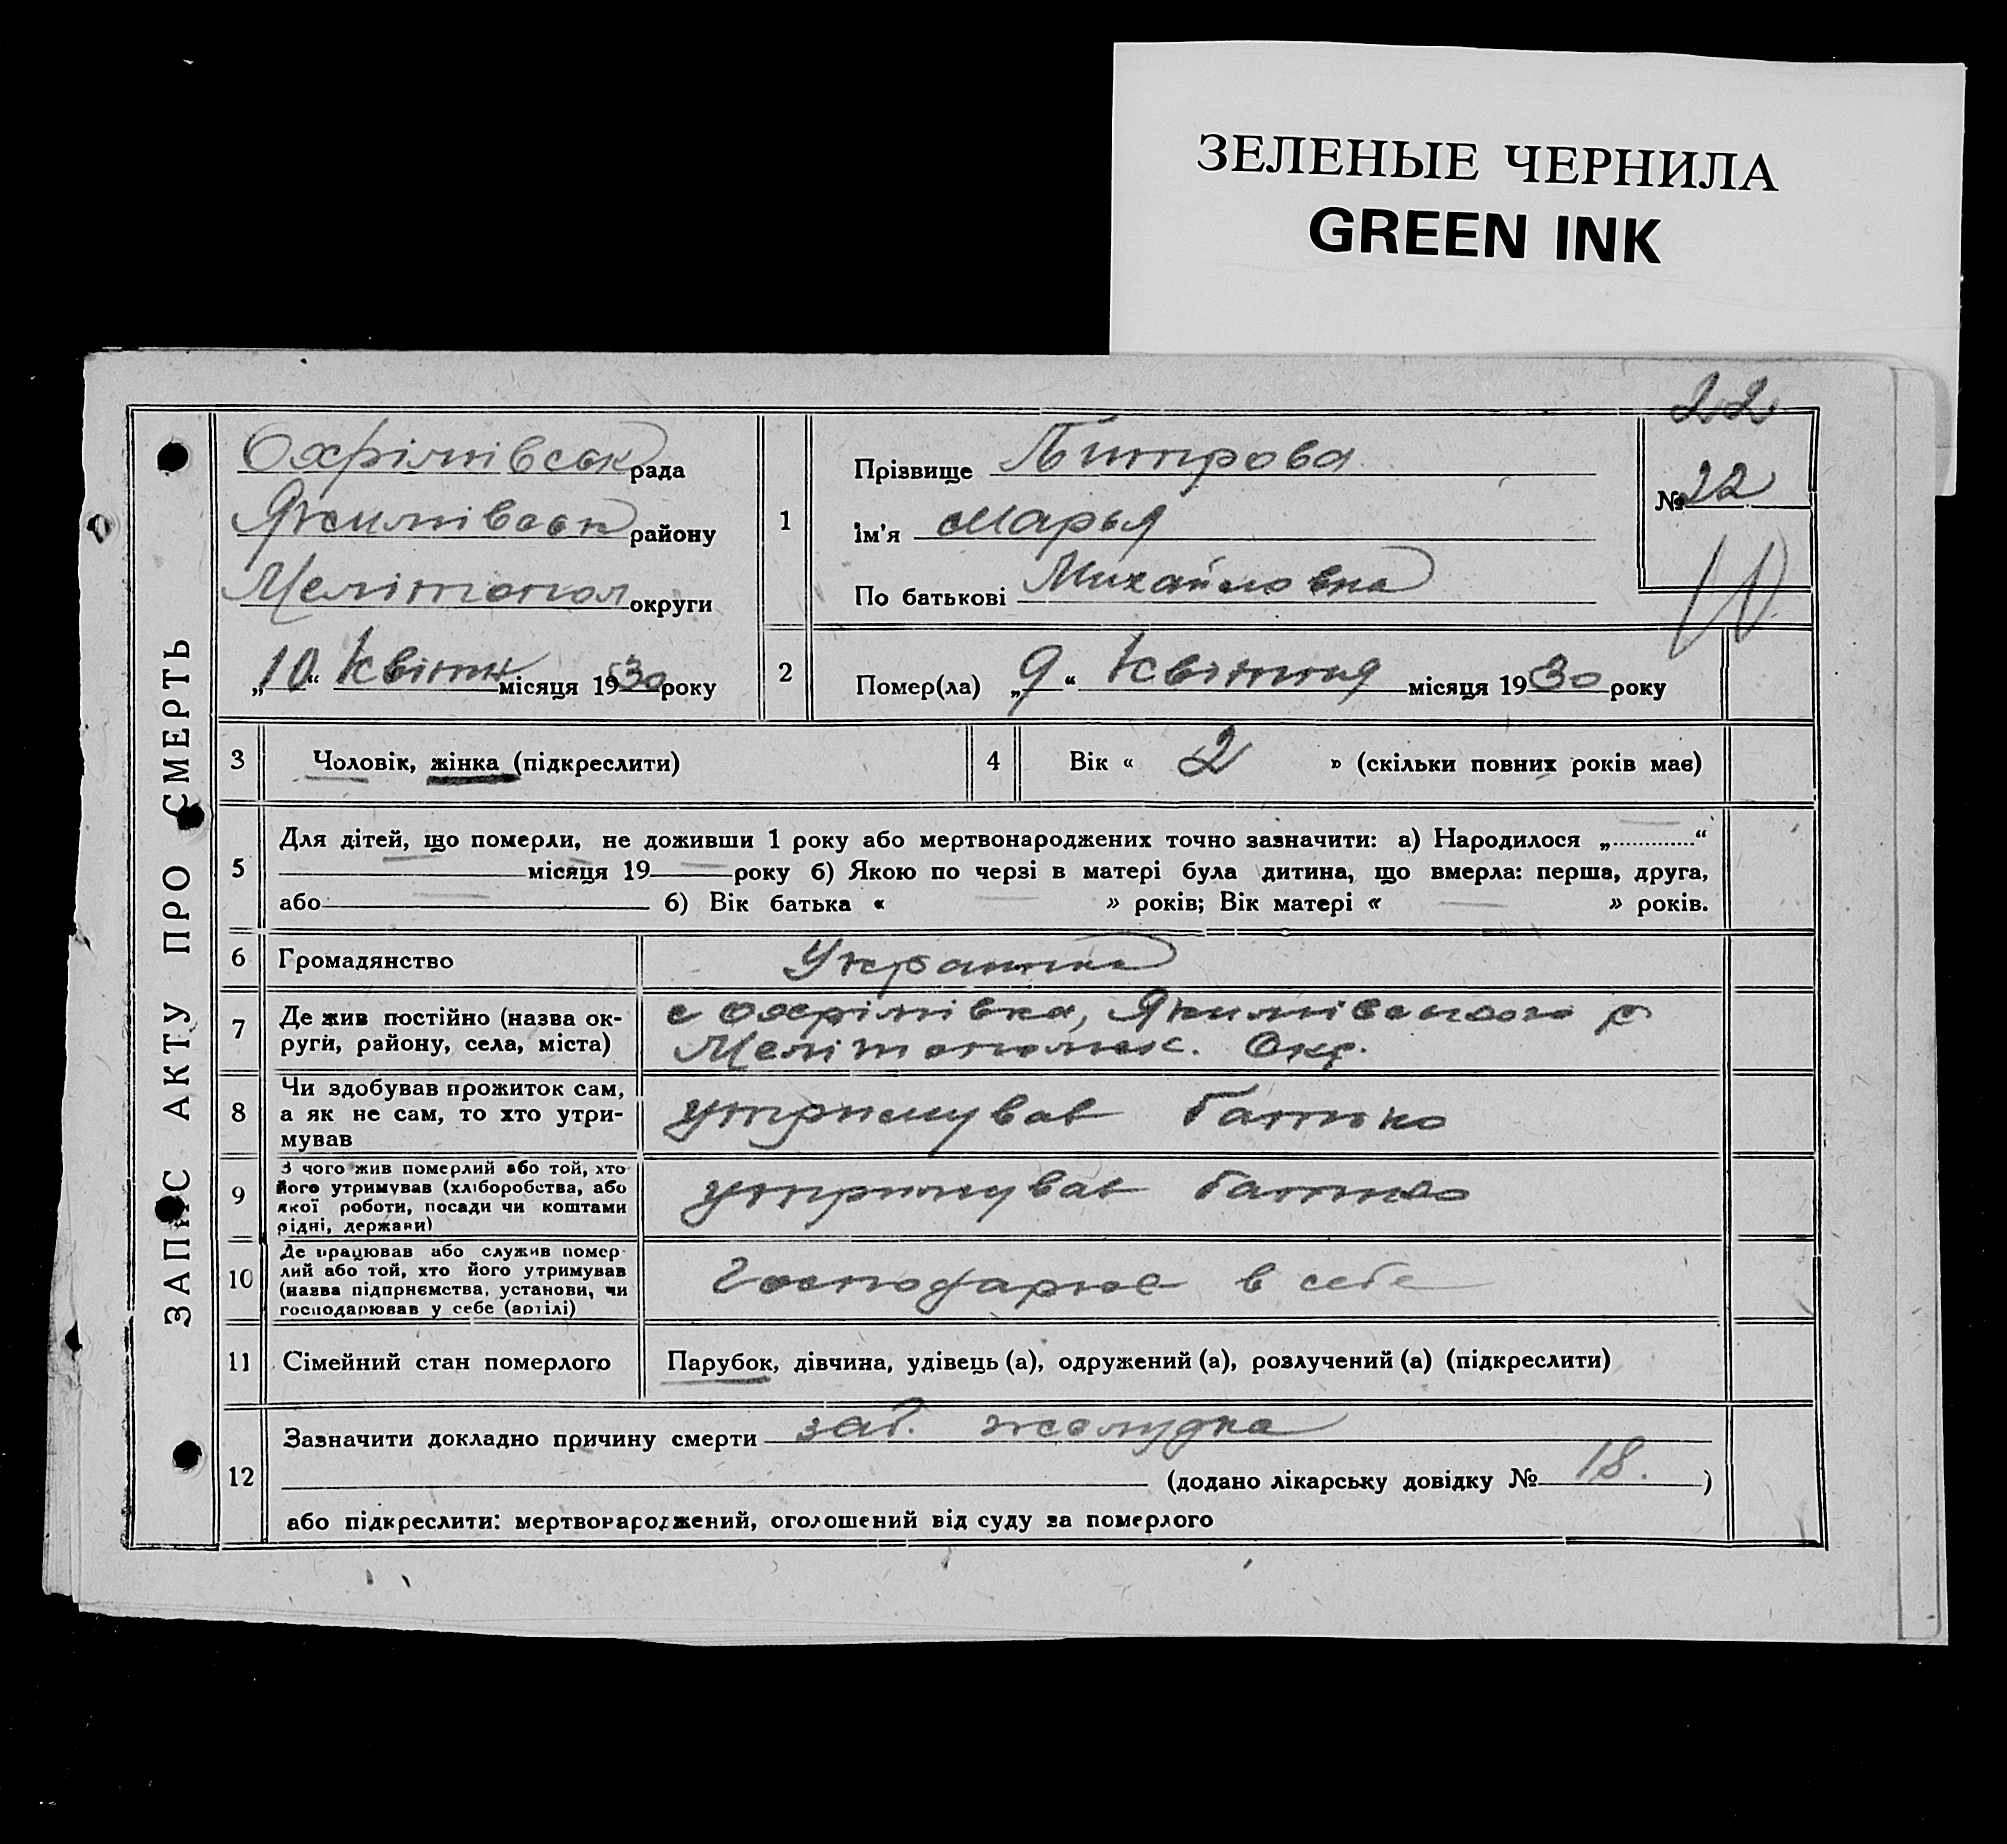 ЗЕЛЕНЫЕ ЧЕРНИЛА
GREEN INK
22
ЗАПИС АКТУ ПРО СМЕРТЬ
Охрімівськ рада
Якимівськ району
Мелітопол округи
„10“ квітня місяця 1930 року
1
Прізвище Дмитрова
Ім'я Марья
По батькові Михайловна
№ 22
2
Помер(ла) „9“ квітня місяця 1930 року
3
Чоловік, жінка (підкреслити)
4
Вік « 2 » (скільки повних років має)
5
Для дітей, що померли, не доживши 1 року або мертвонароджених точно зазначити: а) Народилося „ “
місяця 19 року б) Якою по черзі в матері була дитина, що вмерла: перша, друга,
або б) Вік батька « » років; Вік матері « » років.
6
Громадянство
Украинка
7
Де жив постійно (назва ок-
руги, району, села, міста)
с Охрімівка, Якимівського р
Мелітопольск. Окр.
8
Чи здобував прожиток сам,
а як не сам, то хто утри-
мував
утримував батько
9
З чого жив померлий або той, хто
його утримував (хліборобства, або
якої роботи, посади чи коштами
рідні, держави)
утримував батько
10
Де працював або служив помер-
лий або той, хто його утримував
(назва підприємства, установи, чи
господарював у себе (артілі)
Господарює в себе
11
Сімейний стан померлого
Парубок, дівчина, удівець (а), одружений (а), розлучений (а) (підкреслити)
12
Зазначити докладно причину смерти заб. желудка
(додано лікарську довідку № 18. )
або підкреслити: мертвонароджений, оголошений від суду за померлого